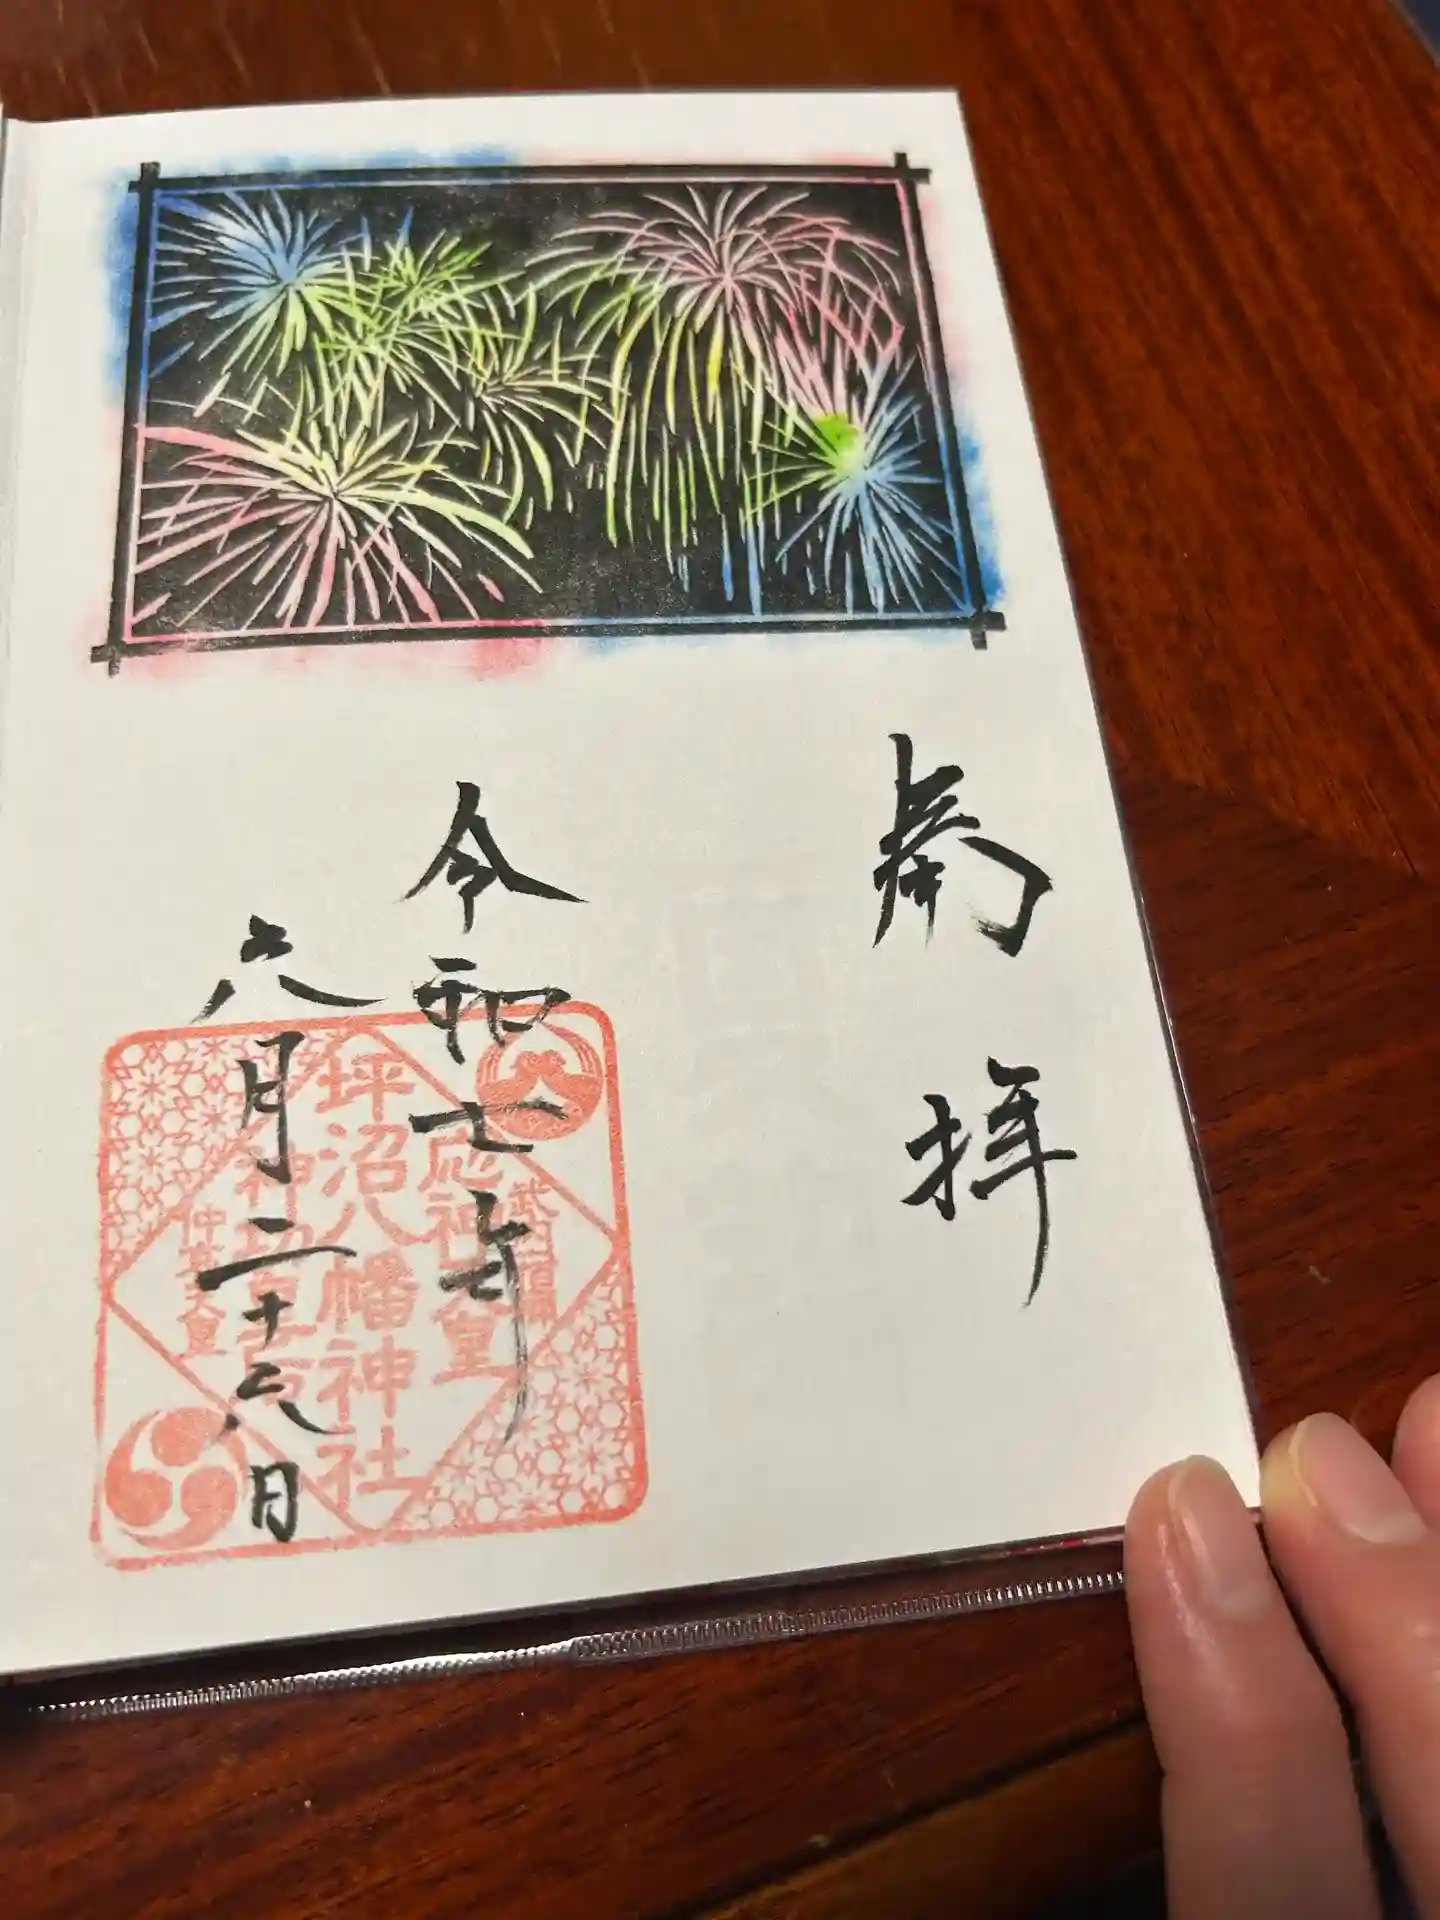 奉拝
令和七年
六月二十六日
武内宿禰
応神天皇
坪沼八幡神社
神功皇后
仲哀天皇